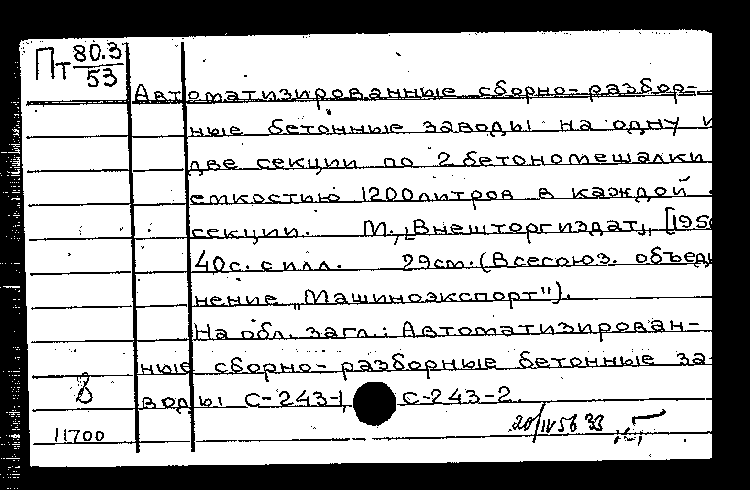 Пт 80.3
53
Автоматизированные сборно-разбор-
ные бетонные заводы на одну и
две секции по 2 бетономешалки
емкостью 1200 литров в каждой
секции. М., "Внешторгиздат", [195
40с. с илл. 29см. (Всесоюз. объеди
нение "Машиноэкспорт").
На обл. загл.: Автоматизирован-
ные сборно-разборные бетонные за
воды С-243-1, С-243-2.
8
11700
20/IV 56